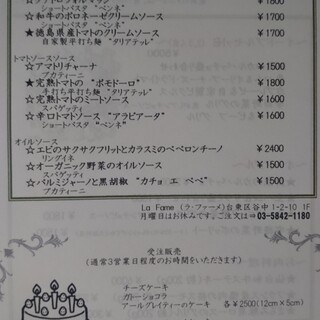 ショートパスタ "ペンネ"
☆和牛のボロネーゼクリームソース ¥1600
ショートパスタ "ペンネ"
★徳島県産トマトのクリームソース ¥1700
自家製平打ち麺 "タリアテッレ"
トマトソースソース
☆アマトリチャーナ ¥1500
ブカティーニ
★完熟トマトの "ポモドーロ" ¥1800
手打ち平打ち麺 "タリアテッレ"
☆完熟トマトのミートソース ¥1600
スパゲッティ
☆辛口トマトソース "アラビアータ" ¥1600
ショートパスタ "ペンネ"
オイルソース
☆エビのサクサクフリットとカラスミのペペロンチーノ ¥2400
リングイネ
☆オーガニック野菜のオイルソース ¥1500
スパゲッティ
☆パルミジャーノと黒胡椒 "カチョ エ ペペ" ¥1500
ブカティーニ
La Fame (ラ・ファーメ)台東区谷中 1-2-10 1F
月曜日はお休みです。ご注文は⇒03-5842-1180
受注販売
(通常3営業日程度のお時間をいただきます)
チーズケーキ
ガトーショコラ
アールグレイティーのケーキ 各¥2500(12cm×5cm)